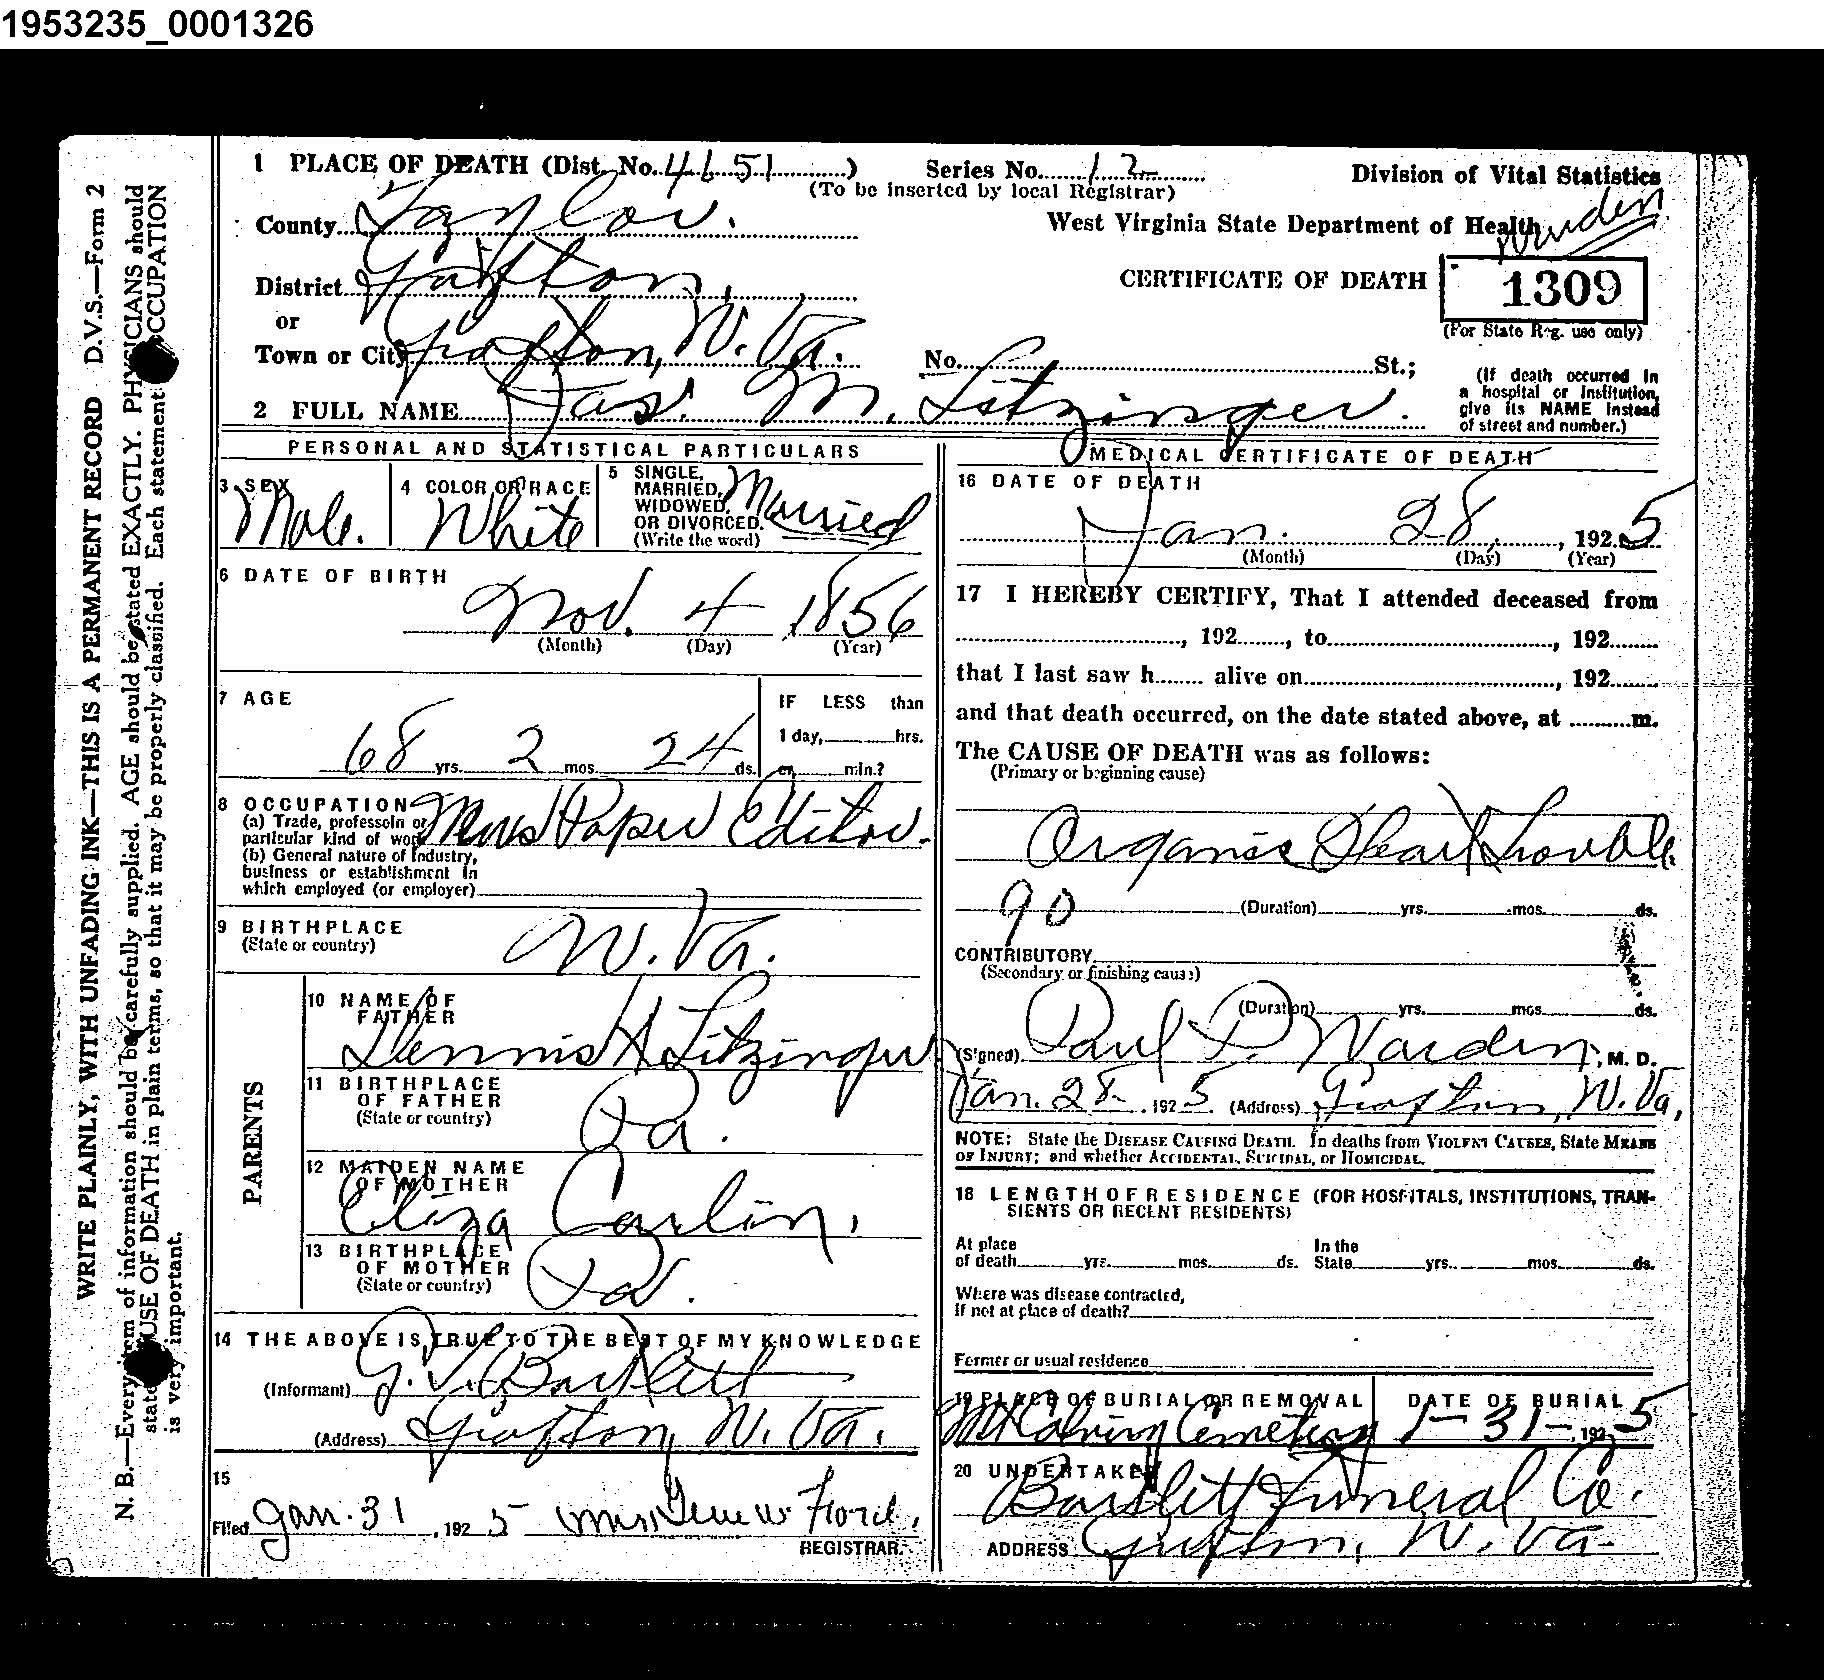 1953235_0001326
WRITE PLAINLY, WITH UNFADING INK—THIS IS A PERMANENT RECORD D.V.S.—Form 2
N. B.—Every item of information should be carefully supplied. AGE should be stated EXACTLY. PHYSICIANS should
state CAUSE OF DEATH in plain terms, so that it may be properly classified. Each statement OCCUPATION
is very important.
1 PLACE OF DEATH (Dist. No. 4651) Series No. 12 Division of Vital Statistics
(To be inserted by local Registrar)
County Taylor. West Virginia State Department of Health Warden
District Grafton, CERTIFICATE OF DEATH 1309
or (For State Reg. use only)
Town or City Grafton, W. Va. No. St.;
(If death occurred in
a hospital or institution,
give its NAME instead
of street and number.)
2 FULL NAME Jas. M. Litzinger.
PERSONAL AND STATISTICAL PARTICULARS
3 SEX Male.
4 COLOR OR RACE White
5 SINGLE,
MARRIED,
WIDOWED,
OR DIVORCED.
(Write the word)
Married
6 DATE OF BIRTH
Nov. 4 1856
(Month) (Day) (Year)
7 AGE
68 yrs. 2 mos. 24 ds.
IF LESS than
1 day, hrs.
or min.?
8 OCCUPATION
(a) Trade, professoin or
particular kind of work
News Paper Editor.
(b) General nature of Industry,
business or establishment in
which employed (or employer)
9 BIRTHPLACE
(State or country)
W. Va.
PARENTS
10 NAME OF
FATHER
Dennis H Litzinger
11 BIRTHPLACE
OF FATHER
(State or country)
Pa.
12 MAIDEN NAME
OF MOTHER
Eliza Carlin.
13 BIRTHPLACE
OF MOTHER
(State or country)
Pa.
14 THE ABOVE IS TRUE TO THE BEST OF MY KNOWLEDGE
(Informant) Bartlett
(Address) Grafton, W. Va.
15
Filed Jan. 31, 1925 Ford.
REGISTRAR.
MEDICAL CERTIFICATE OF DEATH
16 DATE OF DEATH
Jan. 28, 1925
(Month) (Day) (Year)
17 I HEREBY CERTIFY, That I attended deceased from
, 192 , to , 192
that I last saw h alive on , 192
and that death occurred, on the date stated above, at m.
The CAUSE OF DEATH was as follows:
(Primary or beginning cause)
Organic Heart Trouble.
90 (Duration) yrs. mos. ds.
CONTRIBUTORY
(Secondary or finishing cause)
(Duration) yrs. mos. ds.
(Signed) Paul P. Warden, M. D.
Jan. 28. 1925. (Address) Grafton, W. Va,
NOTE: State the DISEASE CAUSING DEATH. In deaths from VIOLENT CAUSES, State MEANS
OF INJURY; and whether ACCIDENTAL, SUICIDAL, or HOMICIDAL.
18 LENGTH OF RESIDENCE (FOR HOSPITALS, INSTITUTIONS, TRAN-
SIENTS OR RECENT RESIDENTS)
At place
of death yrs. mos. ds.
In the
State yrs. mos. ds.
Where was disease contracted,
if not at place of death?
Former or usual residence
19 PLACE OF BURIAL OR REMOVAL DATE OF BURIAL
Mt Calvary Cemetery 1-31-, 1925
20 UNDERTAKER
Bartlett Funeral Co.
ADDRESS Grafton, W. Va.